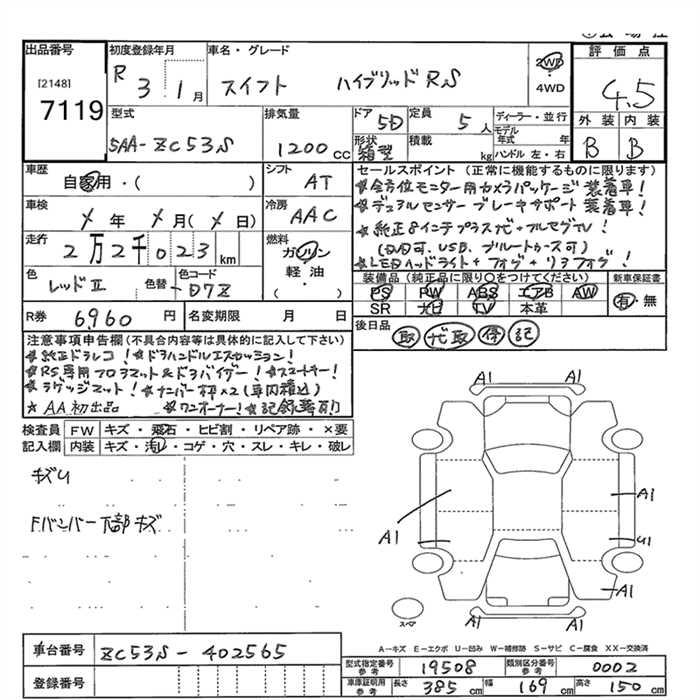 出品番号
[2148]
7119
初度登録年月
R 3 . 1 月
車名・グレード
スイフト ハイブリッド RS
2WD
4WD
評価点
4.5
外装 内装
B B
型式
5AA-ZC53S
排気量
1200 cc
ドア
5D
形状
箱型
定員
5 人
積載
kg
ディーラー・並行
モデル年式 年
ハンドル 左・右
車歴
自家用・( )
シフト
AT
車検
年 月( 日)
冷房
AAC
走行
2万2千023 km
燃料
ガソリン
軽油・
( )
色
レッドⅡ
色替
色コード
D7Z
R券 6,960 円
名変期限 月 日
セールスポイント (正常に機能するものに限ります)
★全方位モニター用カメラパッケージ装着車!
★デュアルセンサーブレーキサポート装着車!
★純正8インチプラスナビ+フルセグTV!
(DVD可、USB、ブルートゥース可)
★LEDヘッドライト+フォグ+リヤフォグ!
装備品(純正品に限り○をつけてください)
PS PW ABS エアB AW
SR ナビ TV 本革
新車保証書
有・無
後日品
取 ナビ取 保 記
注意事項申告欄(不具合内容等は具体的に記入して下さい)
★純正ドラレコ! ★ドアハンドルエスカッション!
★RS専用フロアマット&ドアバイザー! ★スマートキー!
★ラゲッジマット! ★ナンバー枠×2(車内積込)
★AA初出品 ★ワンオーナー! ★記録簿有り
検査員記入欄
FW キズ・飛石・ヒビ割・リペア跡・×要
内装 キズ・汚レ・コゲ・穴・スレ・キレ・破レ
キズU
Fバンパー下部キズ
A1 A1
A1
A1
U1
A1
A1
スペア
A-キズ E-エクボ U-凹み W-補修跡 S-サビ C-腐食 XX-交換済
車台番号 ZC53S-402565
登録番号
型式指定番号 参考 19508
類別区分番号 参考 0002
車庫証明用 参考 長さ 385 cm 幅 169 cm 高さ 150 cm